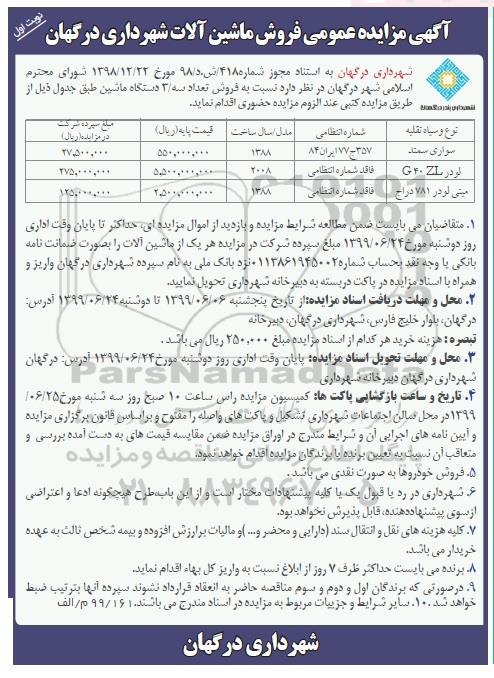 نوبت اول
آگهی مزایده عمومی فروش ماشین آلات شهرداری درگهان
شهرداری درگهان به استناد مجوز شماره۴۱۸/ش.د/۹۸ مورخ ۱۳۹۸/۱۲/۲۲ شورای محترم
اسلامی شهر درگهان در نظر دارد نسبت به فروش تعداد سه/۳ دستگاه ماشین طبق جدول ذیل از
طریق مزایده کتبی عند الزوم مزایده حضوری اقدام نماید.
نوع وسیله نقلیه شماره انتظامی مدل/سال ساخت قیمت پایه(ریال) مبلغ سپرده شرکت در مزایده(ریال)
سواری سمند ۳۵۷ج۱۷۷ایران۸۴ ۱۳۸۸ ۵۵۰,۰۰۰,۰۰۰ ۲۷,۵۰۰,۰۰۰
لودر G۴۰ ZL فاقد شماره انتظامی ۲۰۰۸ ۵,۵۰۰,۰۰۰,۰۰۰ ۲۷۵,۰۰۰,۰۰۰
مینی لودر ۷۸۱ دراج فاقد شماره انتظامی ۱۳۸۸ ۲,۵۰۰,۰۰۰,۰۰۰ ۱۲۵,۰۰۰,۰۰۰
۱. متقاضیان می بایست ضمن مطالعه شرایط مزایده و بازدید از اموال مزایده ای، حداکثر تا پایان وقت اداری
روز دوشنبه مورخ۱۳۹۹/۰۶/۲۴ مبلغ سپرده شرکت در مزایده هر یک از ماشین آلات را بصورت ضمانت نامه
بانکی یا وجه نقد بحساب شماره۰۱۱۳۸۶۱۹۴۵۰۰۲نزد بانک ملی به نام سپرده شهرداری درگهان واریز و
همراه با اسناد مزایده در پاکت دربسته به دبیرخانه شهرداری تحویل نمایید.
۲. محل و مهلت دریافت اسناد مزایده:از تاریخ پنجشنبه ۱۳۹۹/۰۶/۰۶ تا دوشنبه۱۳۹۹/۰۶/۲۴ آدرس:
درگهان، بلوار خلیج فارس، شهرداری درگهان، دبیرخانه
تبصره: هزینه خرید هر کدام از اسناد مزایده مبلغ ۲۵۰,۰۰۰ ریال می باشد.
۳. محل و مهلت تحویل اسناد مزایده: پایان وقت اداری روز دوشنبه مورخ۱۳۹۹/۰۶/۲۴ آدرس: درگهان
شهرداری درگهان دبیرخانه شهرداری
۴. تاریخ و ساعت بازگشایی پاکت ها: کمیسیون مزایده راس ساعت ۱۰ صبح روز سه شنبه مورخ۰۶/۲۵/
۱۳۹۹در محل سالن اجتماعات شهرداری تشکیل و پاکت های واصله را مفتوح و براساس قانون برگزاری مزایده
و آیین نامه های اجرایی آن و شرایط مندرج در اوراق مزایده ضمن مقایسه قیمت های به دست آمده بررسی و
متعاقب آن نسبت به تعیین برنده یا برندگان مزایده اقدام خواهد نمود.
۵. فروش خودروها به صورت نقدی می باشد.
۶. شهرداری در رد یا قبول یک یا کلیه پیشنهادات مختار است و از این باب،طرح هیچگونه ادعا و اعتراضی
ازسوی پیشنهاددهنده، قابل پذیرش نخواهد بود.
۷. کلیه هزینه های نقل و انتقال سند (دارایی و محضر و...)و مالیات برارزش افزوده و بیمه شخص ثالث به عهده
خریدار می باشد.
۸. برنده می بایست حداکثر ظرف ۷ روز از ابلاغ نسبت به واریز کل بهاء اقدام نماید.
۹. درصورتی که برندگان اول و دوم و سوم مناقصه حاضر به انعقاد قرارداد نشوند سپرده آنها بترتیب ضبط
خواهد شد .۱۰. سایر شرایط و جزییات مربوط به مزایده در اسناد مندرج می باشند.۹۹/۱۶۱ م/الف
شهرداری درگهان
ParsNamadData
پایگاه اطلاع رسانی مناقصه و مزایده
۰۲۱-۸۸۳۴۹۶۷۰-۵